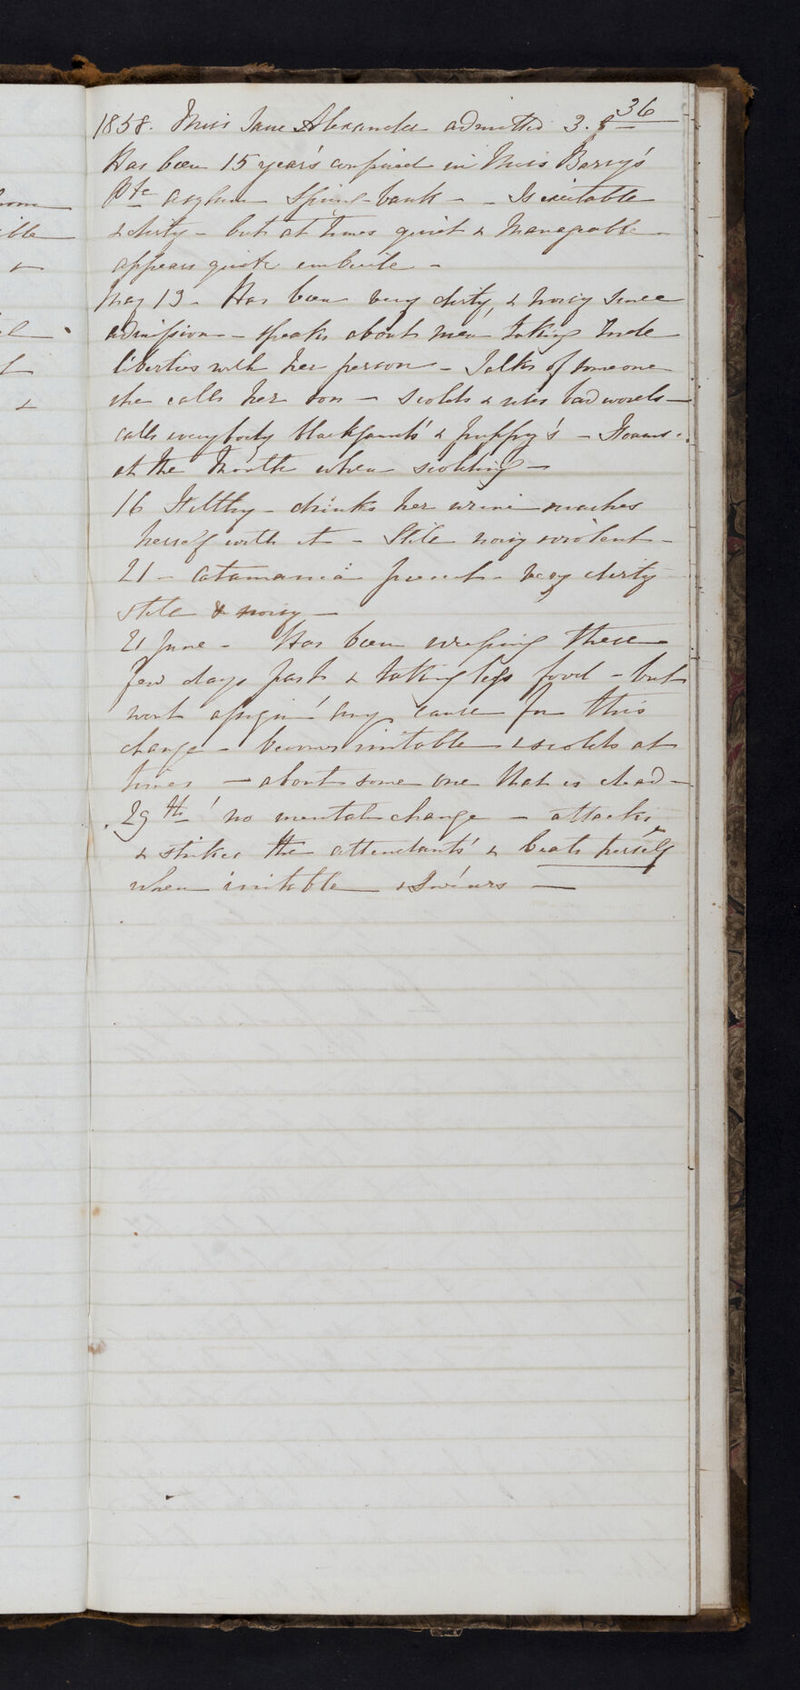 36
1858. Miss Jane Alexander admitted 3.
Has been 15 year's confined in Miss Barry's
Pte asylum Spring-bank - - Is excitable
& dirty - but at times quiet & Manageable -
appears quite imbecile -
May 13 - Has been very dirty, & noisy since
admission - speaks about men taking rude
liberties with her person - Talks of someone
she calls her son - scolds & uses bad words -
calls everybody blackguards' & puppy's - Foams
at the Mouth when scolding -
16 Filthy - drinks her urine washes
herself with it - Still noisy & violent -
21 - Catamania present - Very dirty
still & noisy -
21 June - Has been weeping these
few days past & taking less food - but
wont assign any cause for this
change - becomes irritable & scolds at
times - about some one that is dead -
29th no mental change - attacks
& strikes the attendants' & beats herself
when irritable & Swears -